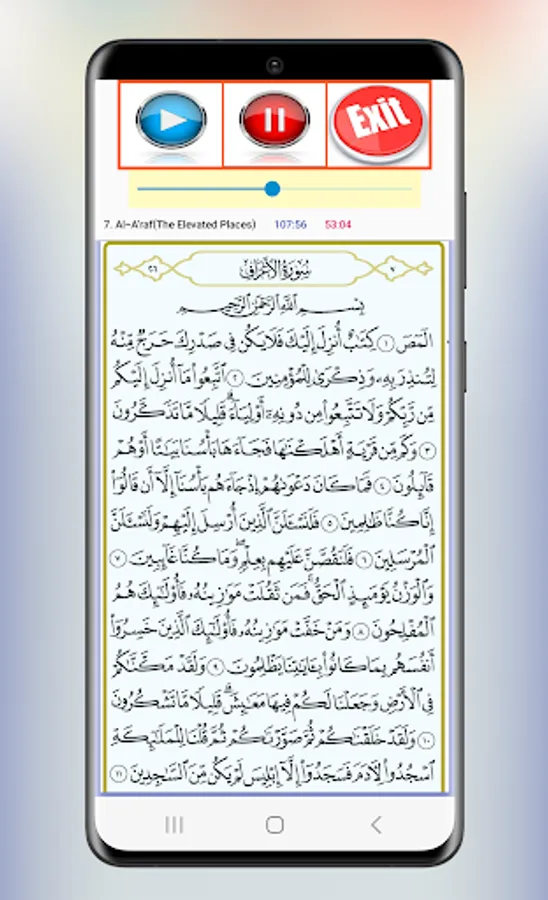 Exit
7. Al-A'raf(The Elevated Places) 107:56 53:04
٢٦ سُورَةُ الأَعۡرَافِ ٧
بِسۡمِ ٱللَّهِ ٱلرَّحۡمَٰنِ ٱلرَّحِيمِ
الٓمٓصٓ ١ كِتَٰبٌ أُنزِلَ إِلَيۡكَ فَلَا يَكُن فِي صَدۡرِكَ حَرَجٞ مِّنۡهُ
لِتُنذِرَ بِهِۦ وَذِكۡرَىٰ لِلۡمُؤۡمِنِينَ ٢ ٱتَّبِعُواْ مَآ أُنزِلَ إِلَيۡكُم
مِّن رَّبِّكُمۡ وَلَا تَتَّبِعُواْ مِن دُونِهِۦٓ أَوۡلِيَآءَۗ قَلِيلٗا مَّا تَذَكَّرُونَ
٣ وَكَم مِّن قَرۡيَةٍ أَهۡلَكۡنَٰهَا فَجَآءَهَا بَأۡسُنَا بَيَٰتًا أَوۡ هُمۡ
قَآئِلُونَ ٤ فَمَا كَانَ دَعۡوَىٰهُمۡ إِذۡ جَآءَهُم بَأۡسُنَآ إِلَّآ أَن قَالُوٓاْ
إِنَّا كُنَّا ظَٰلِمِينَ ٥ فَلَنَسۡـَٔلَنَّ ٱلَّذِينَ أُرۡسِلَ إِلَيۡهِمۡ وَلَنَسۡـَٔلَنَّ
ٱلۡمُرۡسَلِينَ ٦ فَلَنَقُصَّنَّ عَلَيۡهِم بِعِلۡمٖۖ وَمَا كُنَّا غَآئِبِينَ ٧
وَٱلۡوَزۡنُ يَوۡمَئِذٍ ٱلۡحَقُّۚ فَمَن ثَقُلَتۡ مَوَٰزِينُهُۥ فَأُوْلَٰٓئِكَ هُمُ
ٱلۡمُفۡلِحُونَ ٨ وَمَنۡ خَفَّتۡ مَوَٰزِينُهُۥ فَأُوْلَٰٓئِكَ ٱلَّذِينَ خَسِرُوٓاْ
أَنفُسَهُم بِمَا كَانُواْ بِـَٔايَٰتِنَا يَظۡلِمُونَ ٩ وَلَقَدۡ مَكَّنَّٰكُمۡ
فِي ٱلۡأَرۡضِ وَجَعَلۡنَا لَكُمۡ فِيهَا مَعَٰيِشَۗ قَلِيلٗا مَّا تَشۡكُرُونَ
١٠ وَلَقَدۡ خَلَقۡنَٰكُمۡ ثُمَّ صَوَّرۡنَٰكُمۡ ثُمَّ قُلۡنَا لِلۡمَلَٰٓئِكَةِ
ٱسۡجُدُواْ لِأٓدَمَ فَسَجَدُوٓاْ إِلَّآ إِبۡلِيسَ لَمۡ يَكُن مِّنَ ٱلسَّٰجِدِينَ ١١